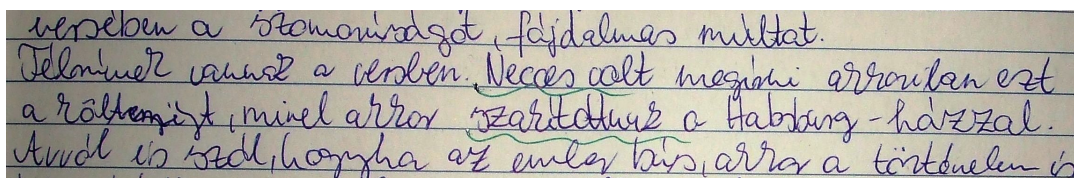 versében a szomorúságot, fájdalmas múltat.
Jelmúnek vannak a versben. Necces volt megírni akkoriban ezt
a költeményt, mivel akkor szakítottunk a Habsburg-házzal.
Arról is szól, hogyha az ember bús, akkor a történelem is